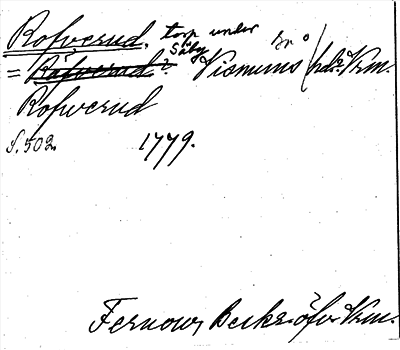 Rofverud. torp under Säby
= Räfverud? Visnums hd? Vrm.
Rofwerud
S. 502. 1779.
Fernow, Beskr. öfv. Vrm.